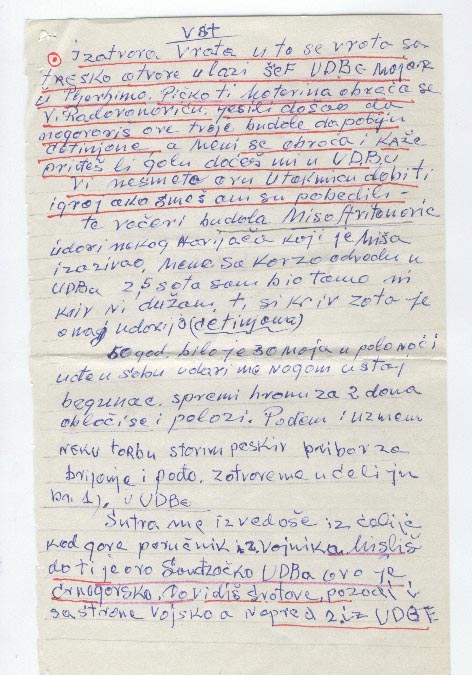 VST
izatvora Vrata u to se vrota sa
tresko otvore ulazi šef UDBe major
Pičko ti Materina obraća se
V. Radovanoviću, jesili došao da
ove tvoje budale dapobiju
cetinjane, a meni se obraća i kaže
golu doćeš mi u UDBu
Vi nesmete ovu Utakmicu dobiti
igroj ako smeš ani su pobedili -
te večeri budala Mišo Aritonović
udari nekog Navijača koji je Miša
izazivao, Mene sa korzo odvodu u
UDBa 2,5 sota sam bio tamo ni
kriv ni dužan, ti si kriv zota je
onaj udorio (cetinjana)
50 god, bilo je 30 moja u polo noći
uđe u sobu udari me nogom ustaj
begunac, spremi hranu za 2 dana
oblači se i polazi. Pođem i uzmem
neku torbu stavim peškir pribor za
brijanje i pođo, zotvoreme u ćeliju
br. 1), u UDBe
Sutra me izvedoše iz ćelije
kod gore poručnik i 2. vojnika Misliš
da ti je ovo Sandžačko UDBa ovo je
črnogorsko, to vidiš svatove, pozadi i
sa strane vojsko a napred 2. iz UDBE